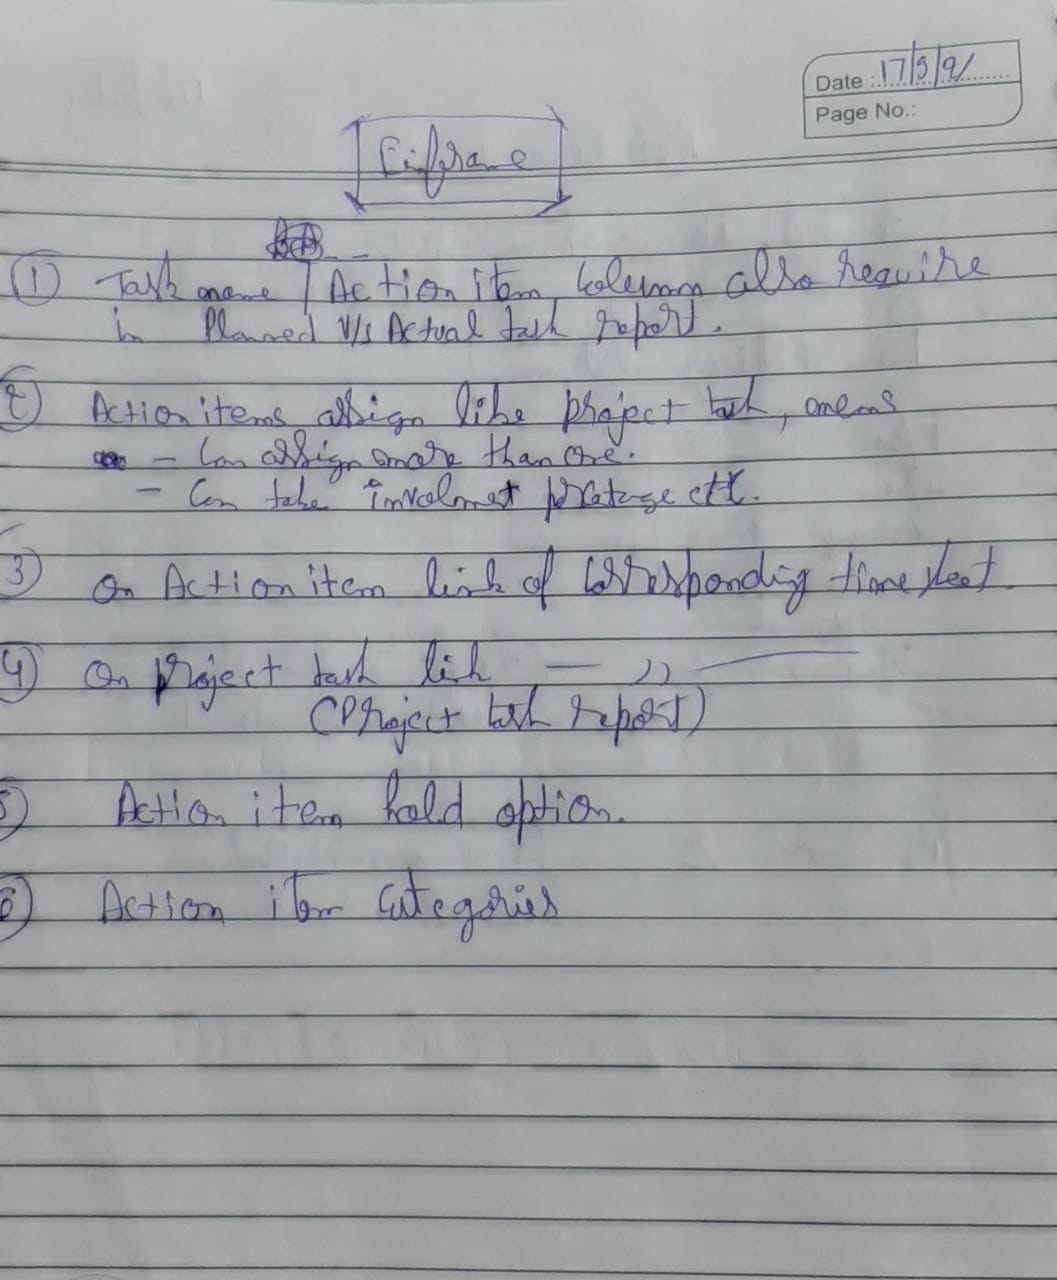 Date : 17/5/21
Page No.:
Einframe
① Task name / Action item Column also require
in Planned V/s Actual task report.
② Action items assign like project task, means
- Can assign more than one.
- Can take involmet prcetage ett.
③ On Action item link of Corresponding time sheet.
④ On project task link — ,, —
(Project task report)
⑤ Action item hold option.
⑥ Action item Categories